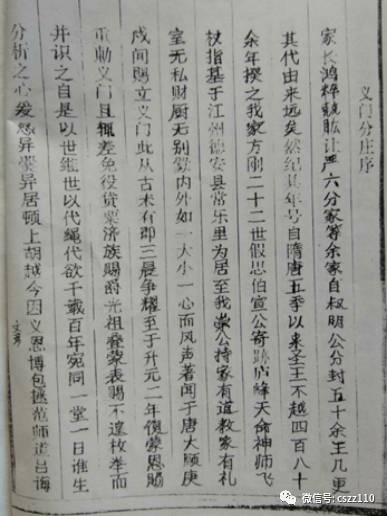 义门分庄序
家长鸿粹競肱让严六分家等余家自权明公分封五十余王几更
其代由来远矣然纪其年号自隋唐五季以来圣王不越四百八十
余年揆之我家方刚二十二世假思伯宣公寄跡庐峰天命神师飞
杖指基于江州德安县常乐里为居至我崇公持家有道教家有礼
室无私财厨无别爨内外如一大小一心而风声著闻于唐大顺庚
戍间赐立义门此从古未有即三晨争耀至于升元二年復蒙恩赐
重勅义门且辄差免役贷粟济族赐爵光祖叠蒙表赐不遑枚举而
并识之自是以世継世以代绳代欲千载百年宛同一堂一日谁生
分析之心爰慈异爨异居顿上胡越今因义恩博包拯范师道吕诲
文彦
微信号: cszz110